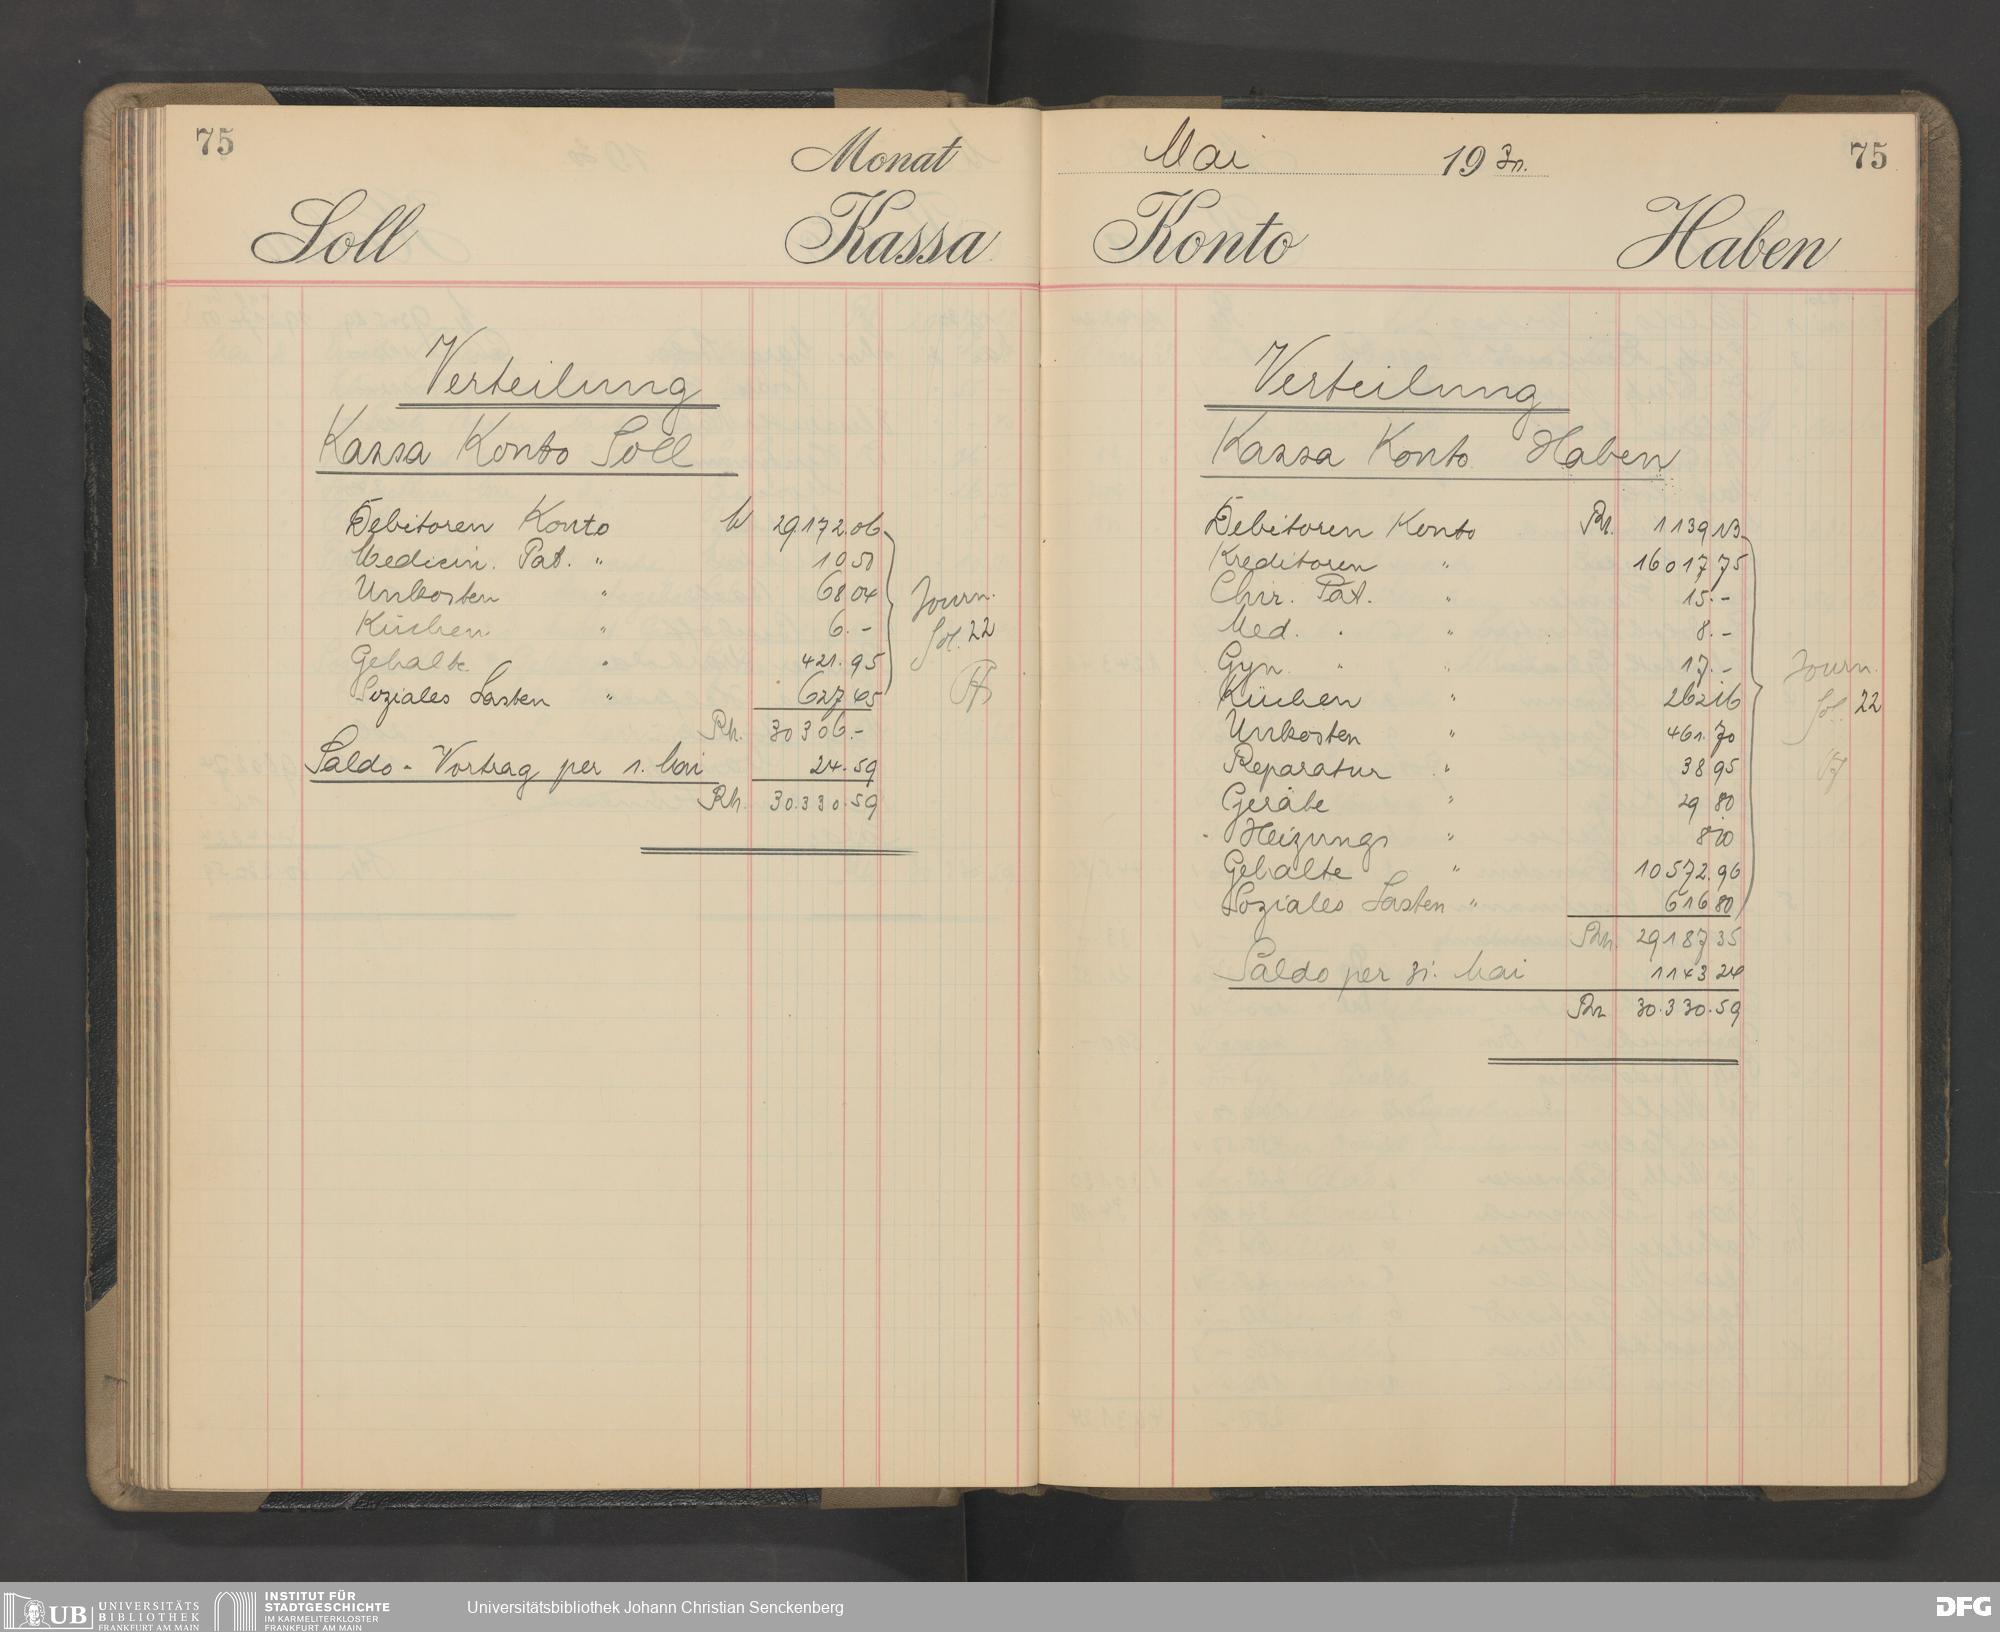 75
Monat
Mai 1930.
75
Soll Kassa
Konto Haben
Verteilung
Kassa Konto Soll
Debitoren Konto M 29172.06
Medicin. Pat. " 10 50
Unkosten " 68 04
Küchen " 6.-
Gehalte " 421.95
Soziales Lasten " 627 45
Journ.
fol. 22
Rm. 30306.-
Saldo-Vortrag per 1. Mai 24.59
Rm. 30.330.59
Verteilung
Kassa Konto Haben
Debitoren Konto Rm. 1139 13
Kreditoren " 16017 75
Chir. Pat. " 15.-
Med. " " 8.-
Gyn. " " 17.-
Küchen " 262 16
Unkosten " 461.70
Reparatur " 38 95
Geräte " 29 80
Heizungs " 8 10
Gehalte " 10572.96
Soziales Lasten " 616 80
Journ.
fol. 22
Rm. 29187 35
Saldo per 31. Mai 1143 24
Rm 30.330.59
UB UNIVERSITÄTS
BIBLIOTHEK
FRANKFURT AM MAIN
INSTITUT FÜR
STADTGESCHICHTE
IM KARMELITERKLOSTER
FRANKFURT AM MAIN
Universitätsbibliothek Johann Christian Senckenberg
DFG